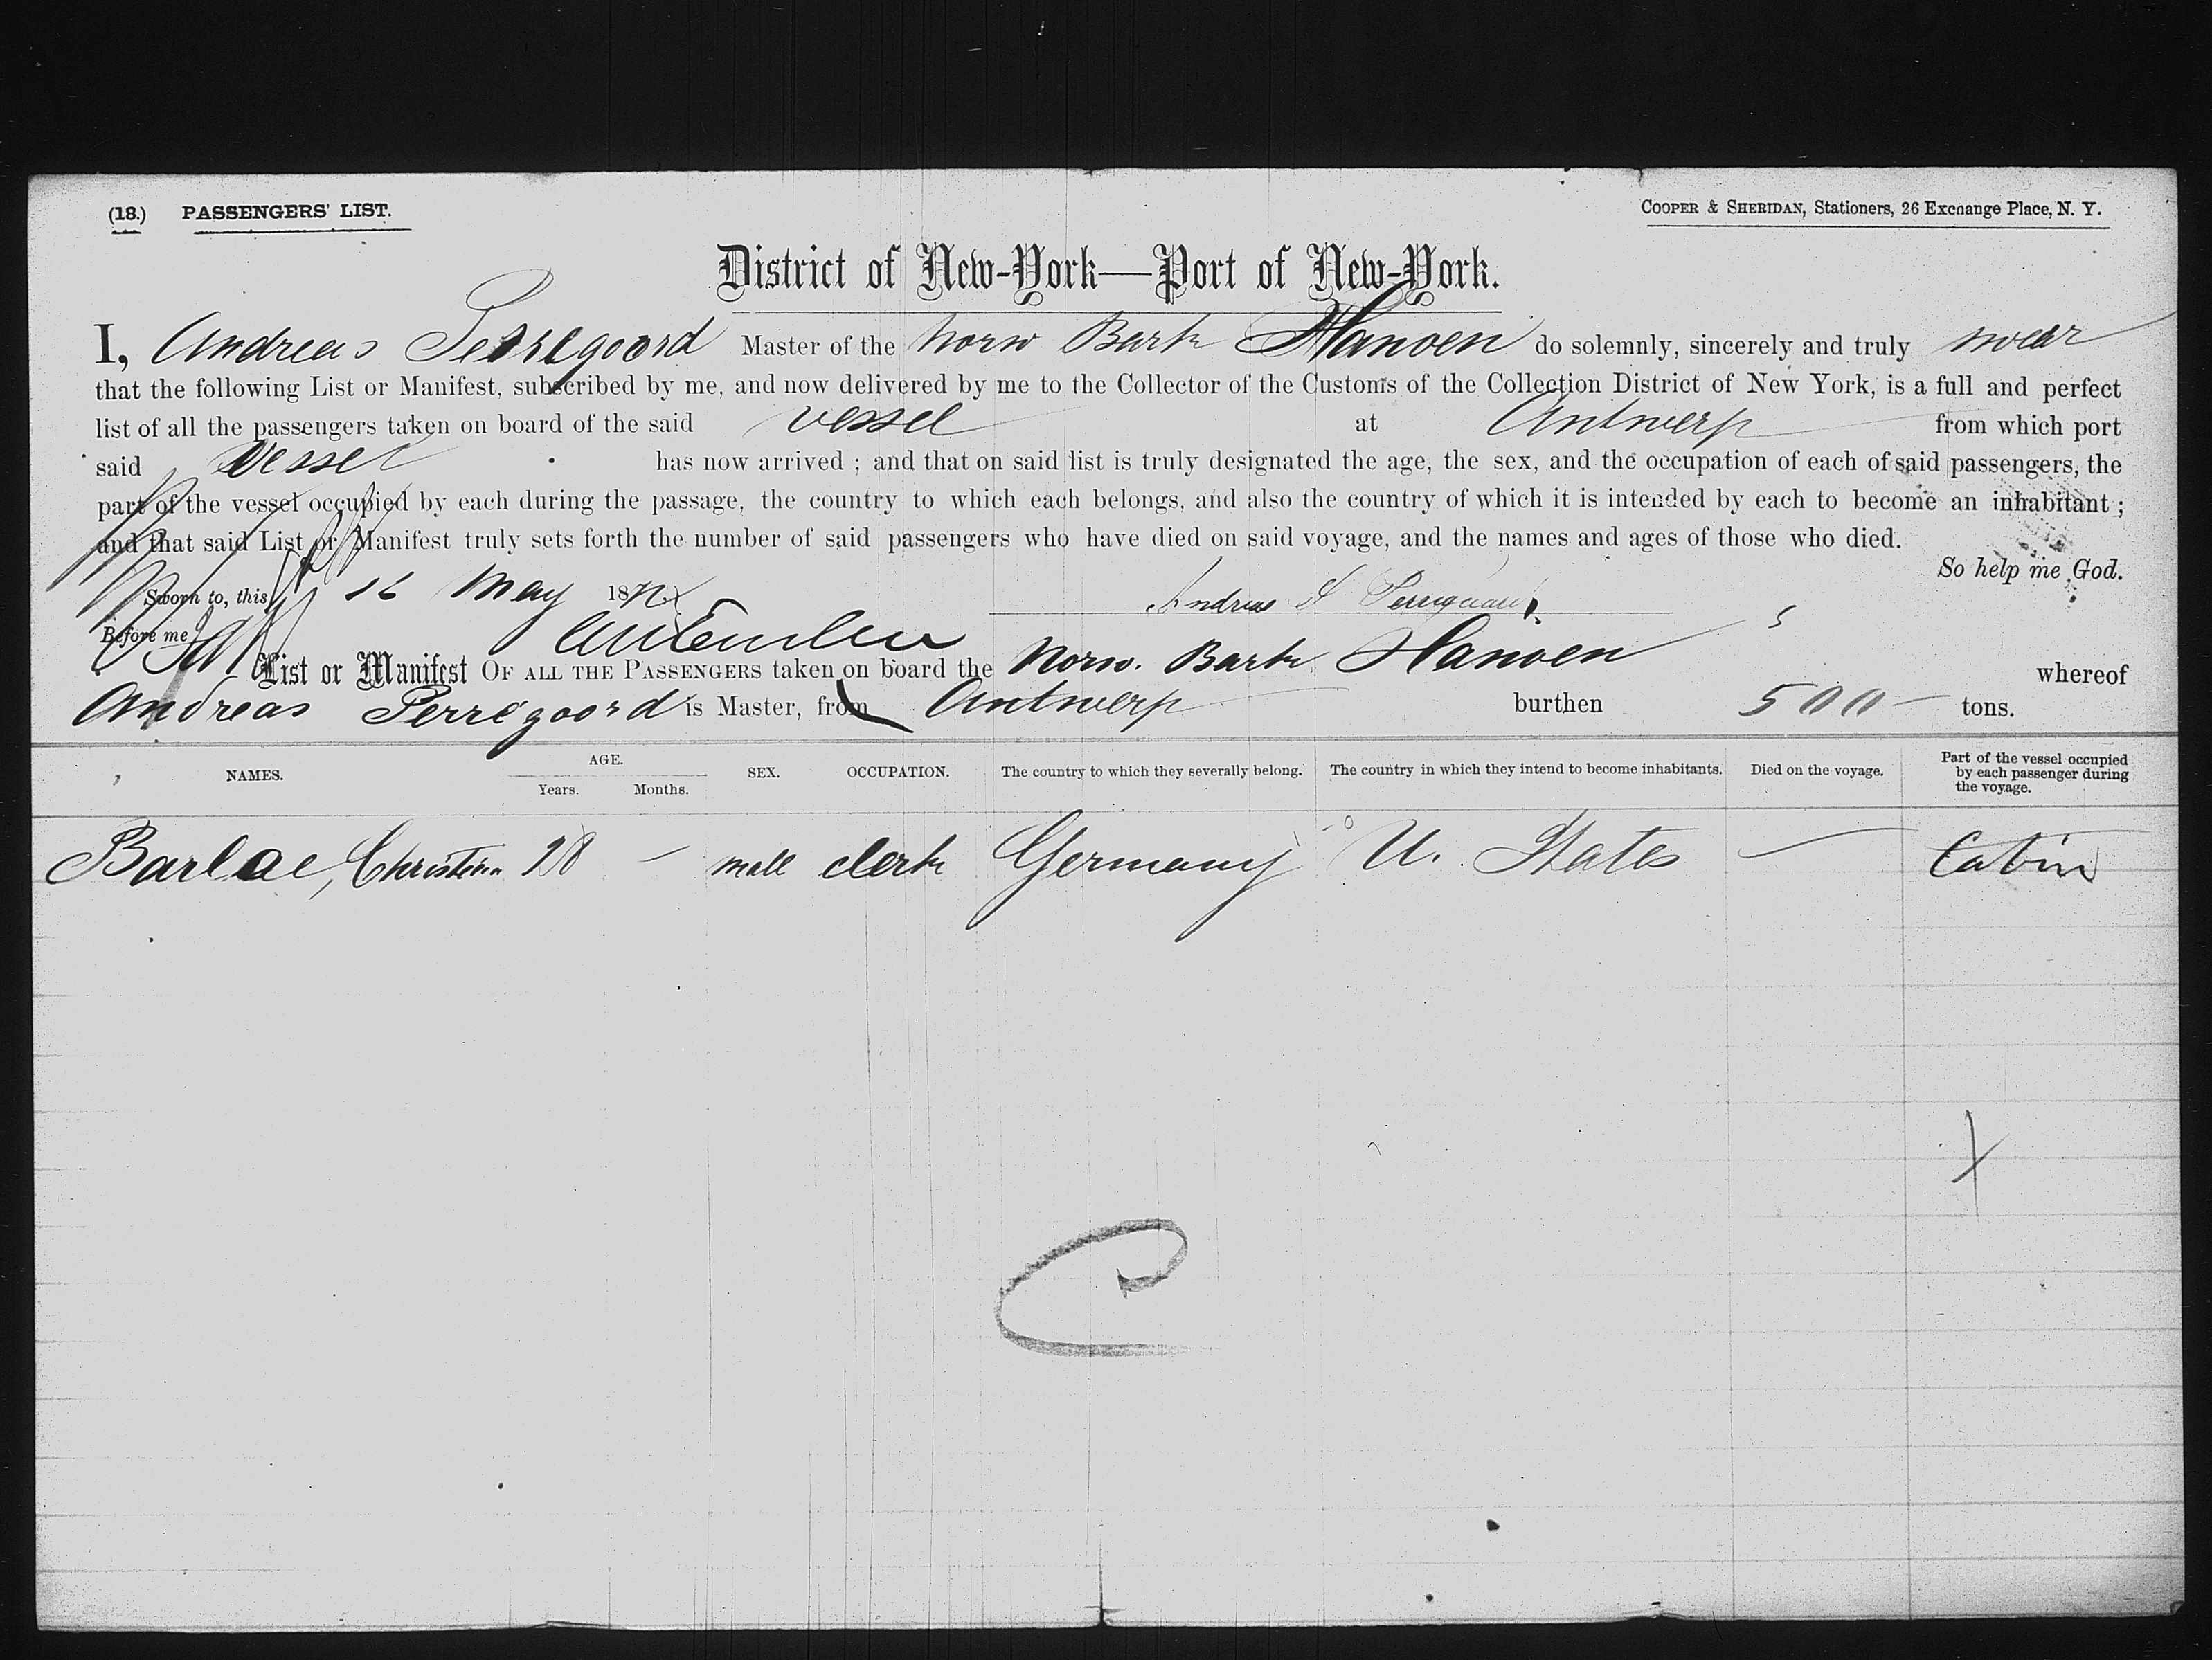 (18.) PASSENGERS' LIST.
COOPER & SHERIDAN, Stationers, 26 Exchange Place, N. Y.
District of New-York—Port of New-York.
I, Andreas Perregoord Master of the Norw Bark Hansen do solemnly, sincerely and truly swear
that the following List or Manifest, subscribed by me, and now delivered by me to the Collector of the Customs of the Collection District of New York, is a full and perfect
list of all the passengers taken on board of the said vessel at Antwerp from which port
said vessel has now arrived ; and that on said list is truly designated the age, the sex, and the occupation of each of said passengers, the
part of the vessel occupied by each during the passage, the country to which each belongs, and also the country of which it is intended by each to become an inhabitant ;
and that said List or Manifest truly sets forth the number of said passengers who have died on said voyage, and the names and ages of those who died.
So help me God.
Sworn to, this 16 May 187 Andreas
Before me
List or Manifest OF ALL THE PASSENGERS taken on board the Norw. Bark Hansen whereof
Andreas Perregoord is Master, from Antwerp burthen 500 tons.
NAMES. AGE. Years. Months. SEX. OCCUPATION. The country to which they severally belong. The country in which they intend to become inhabitants. Died on the voyage. Part of the vessel occupied by each passenger during the voyage.
Barlae, Christian 28 — male clerk Germany U. States — Cabin
C